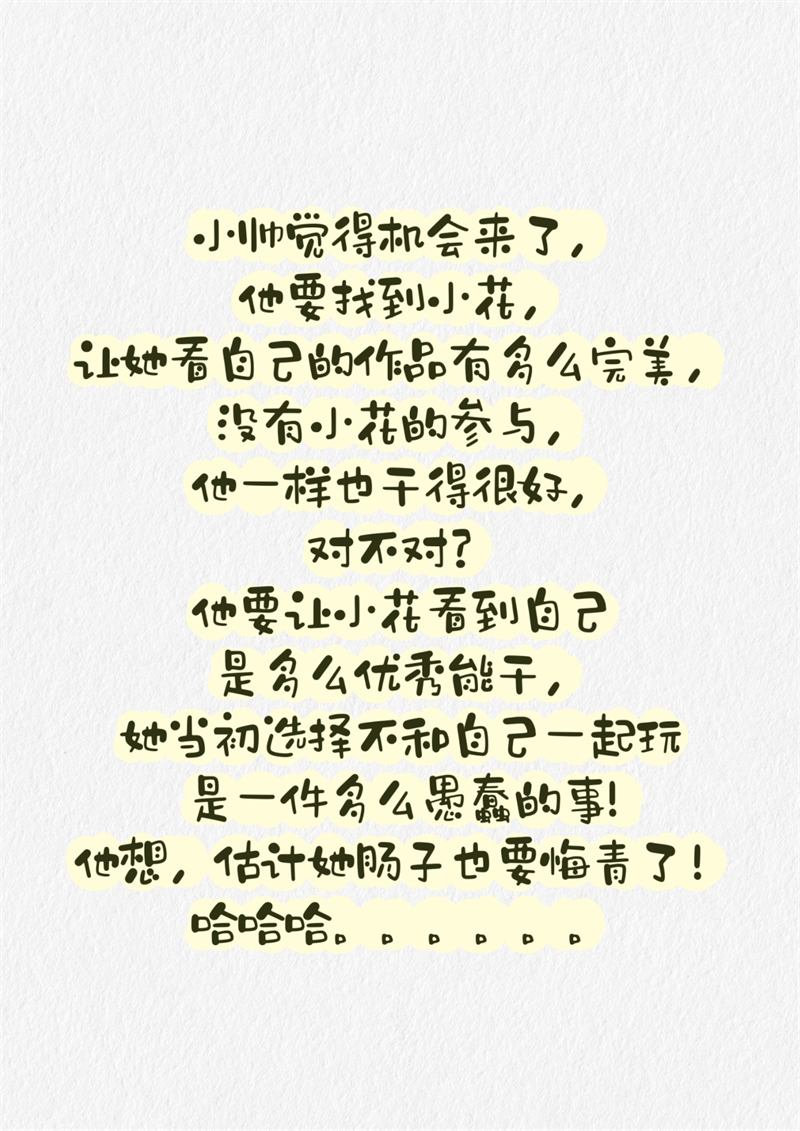 小帅觉得机会来了，
他要找到小花，
让她看自己的作品有多么完美，
没有小花的参与，
他一样也干得很好，
对不对？
他要让小花看到自己
是多么优秀能干，
她当初选择不和自己一起玩
是一件多么愚蠢的事！
他想，估计她肠子也要悔青了！
哈哈哈。。。。。。